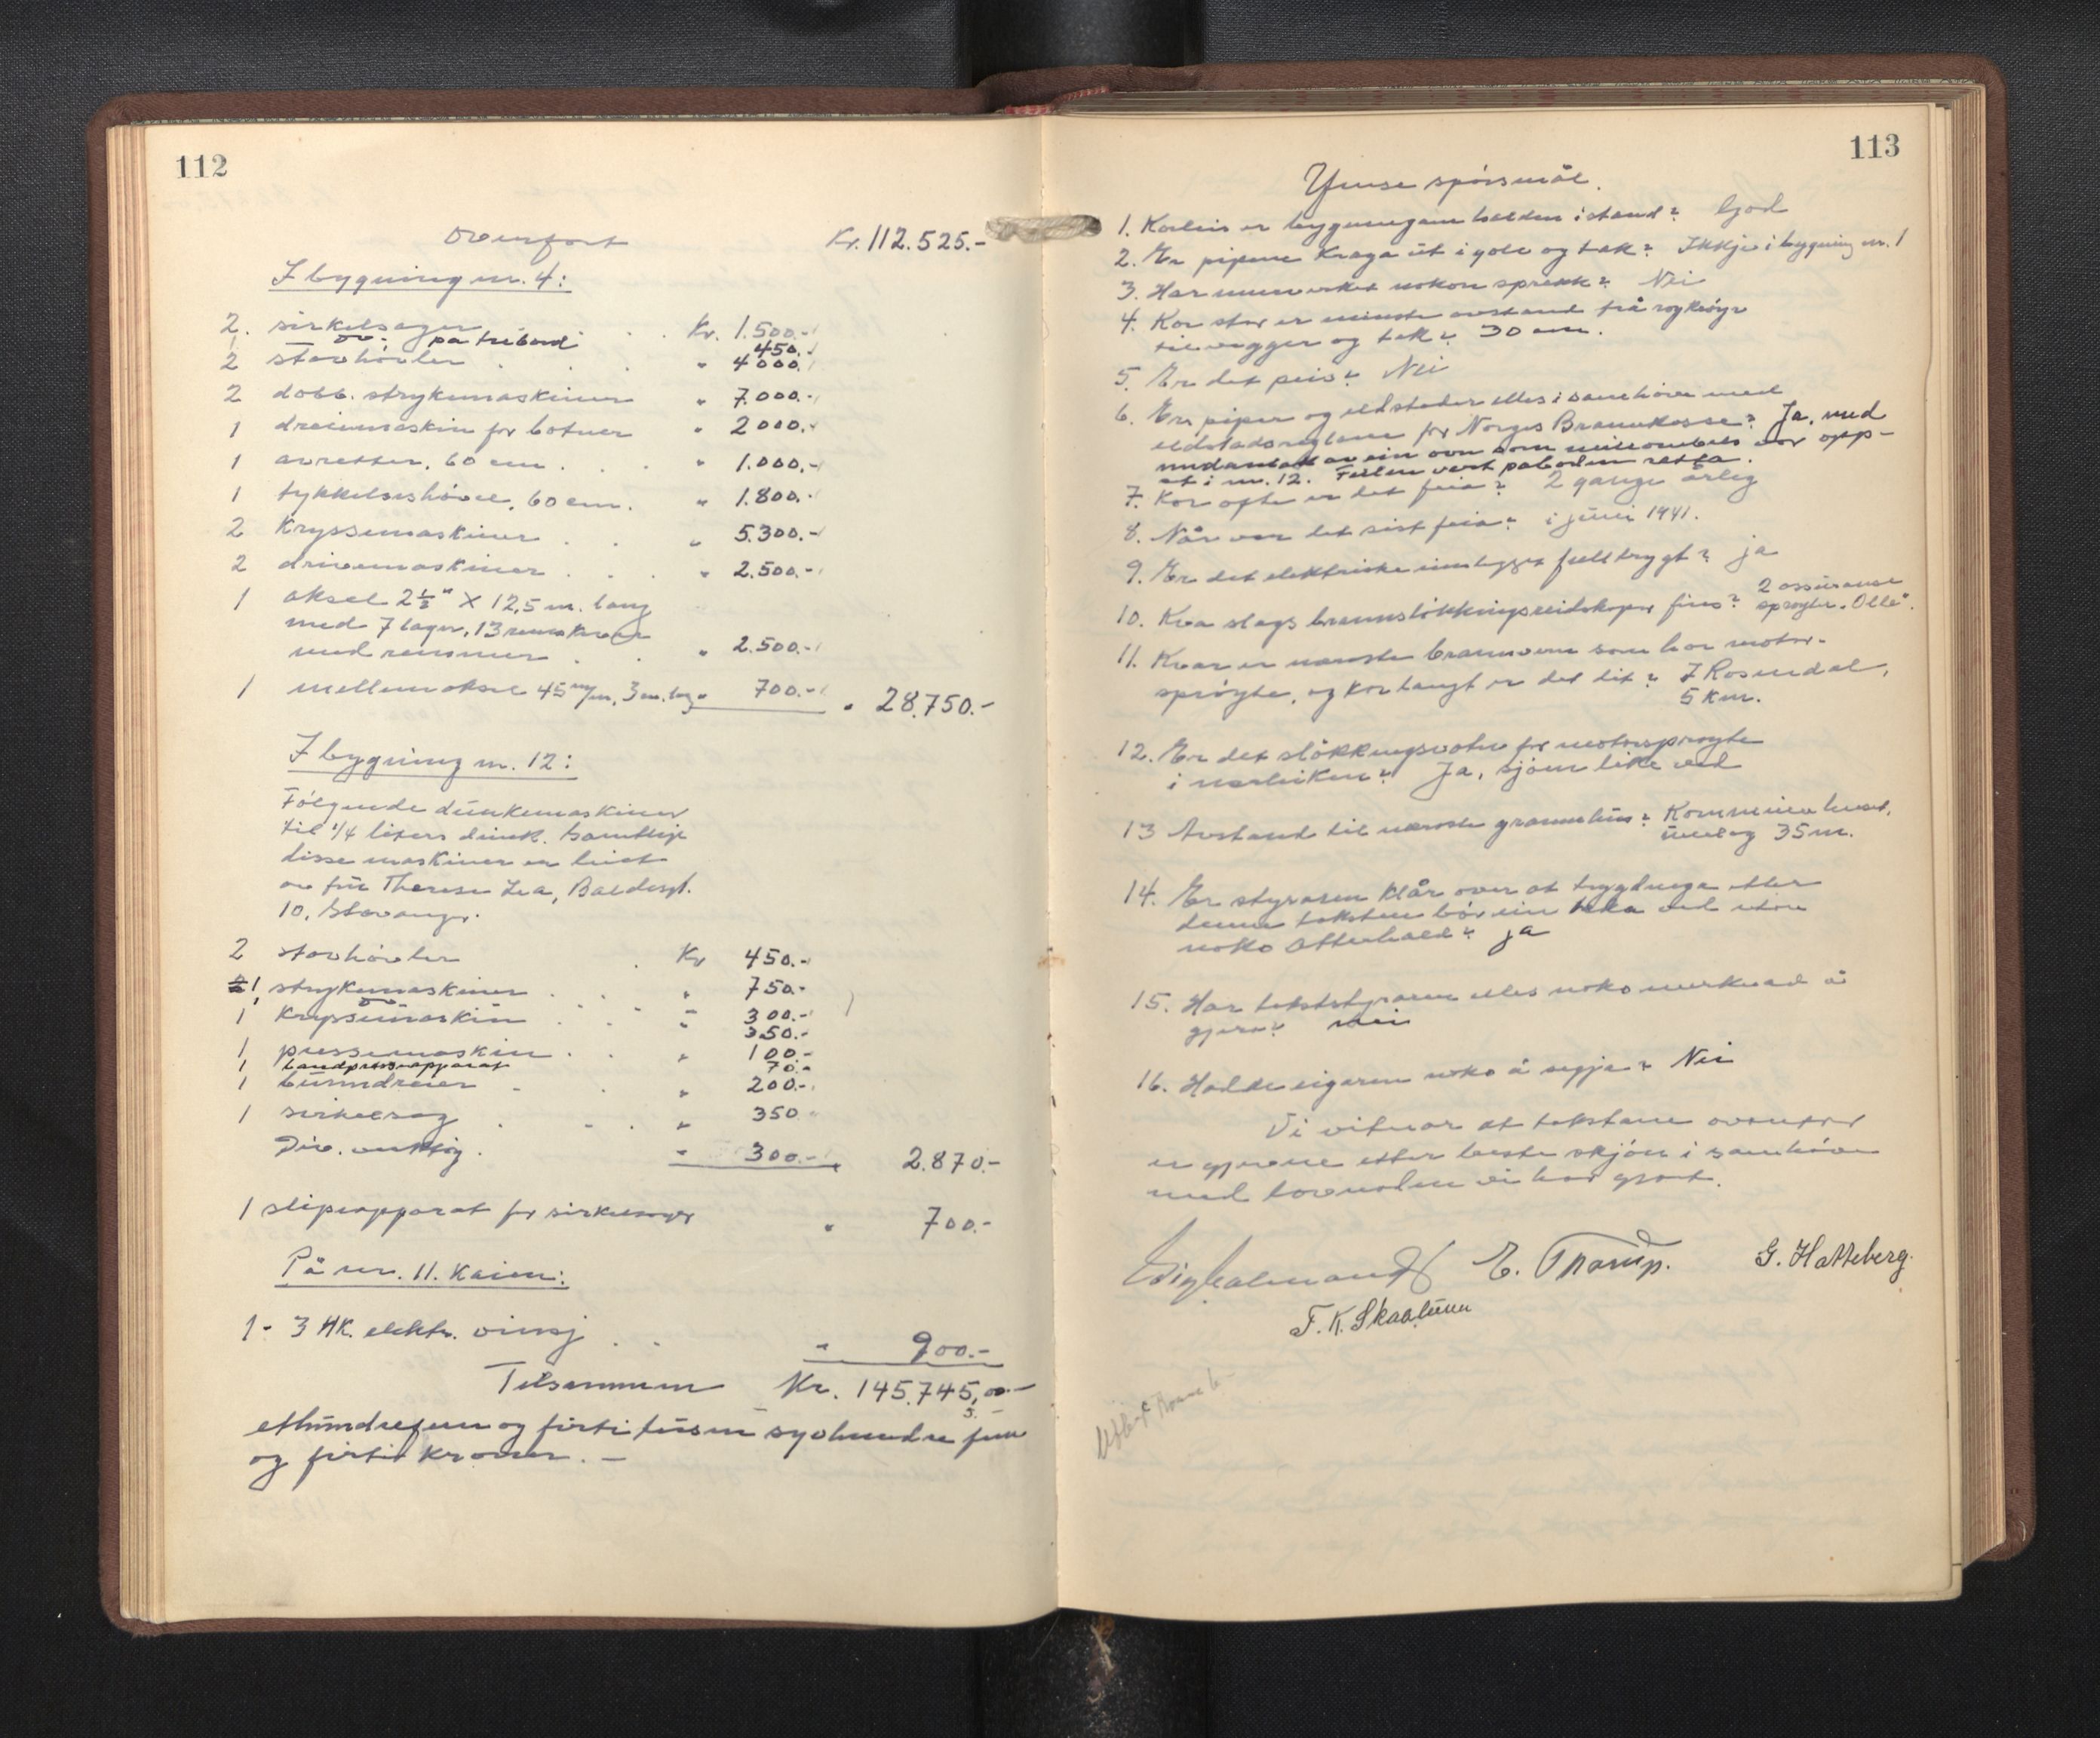 112
Overført Kr. 112.525.-
I bygning nr. 4:
2. sirkelsager . . Kr. 1.500.-
1 do. på trebord 450.-
2 stavhövler . . . " 4000.
2 dobb. strykemaskiner " 7.000.-
1 dreiemaskin for botner " 2000.-
1 avretter, 60 cm . . . " 1.000.-
1 tykkelseshövel, 60 cm. " 1.800.-
2 Kryssemaskiner . . " 5.300.-
2 drivemaskiner . . . " 2.500.-
1 aksel 2½" X 12,5 m. lang
med 7 lager, 13 remskiver
med remmer . . " 2.500.-
1 mellemaksel 45 m/m, 3 m. lg. " 700.- " 28.750.-
I bygning nr. 12:
Fölgende dunkemaskiner
til 1/4 liters dunk. Samtlige
disse maskiner er leiet
av fru Therese Lea, Baldesgt.
10, Stavanger.
2 stavhövler . Kr 450.-
1 strykemaskiner . . . " 750.-
1 do 300.-
1 Kryssemaskin . . . " 350.-
1 pussemaskin . . " 100.-
1 Handpresseapparat 70.-
1 bunndreier . . " 200.-
1 sirkelsag . . . . " 350
Div. verktøy . " 300.- " 2.870.-
1 slipeapparat for sirkelsager " 700.-
På nr. 11. Kaien:
1 - 3 HK. elektr. vinsj . . " 900.-
Tilsammen Kr. 145.745,00.-
5. -
ethundrefem og førti tusen syvhundre fem
og førti kroner. -
113
Ymse spörsmål.
1. Korleis er bygningane halden i stand? God
2. Er pipene Kraga ut i golv og tak? Ikkje i bygning nr. 1
3. Har murverket nokon sprekk? Nei
4. Kor stor er minste avstand frå røykrøyr
til vegger og tak? 30 cm.
5. Er det peis? Nei
6. Er piper og eldsteder elles i samhöve med
eldstadsreglane for Norges Brannkasse? Ja, med
undantak av ein ovn som mellombels var opp-
sett i nr. 12. Feilen vert påboden retta.
7. Kor ofte er det feia? 2 gange årleg
8. Når var det sist feia? i juni 1941.
9. Er det elektriske innlegget fullt trygt? ja
10. Kva slags brannslökkingsreidskaper fins? 2 assuranse
sprøyter "Olle".
11. Kvar er nærmste brannvern som har motor-
sprøyte, og kor langt er det dit? I Rosendal,
5 km.
12. Er det slökkingsvatn for motorsprøyte
i nærleiken? Ja, sjøen like ved
13 Avstand til næraste grannehus? Kommunehuset,
35 m.
14. Er styraren klår over at trygdinga etter
denne taksten bör ein taka ved utan
noko Atterhald? ja
15. Har takststyraren elles noko merknad å
gjera? nei
16. Hadde eigaren noko å segja? Nei
Vi vitnar at takstane ovanfor
er gjevne etter beste skjön i samhöve
med lovnaden vi har gjort.
E. Thorup. G. Hatteberg.
F. K. Skaaluren